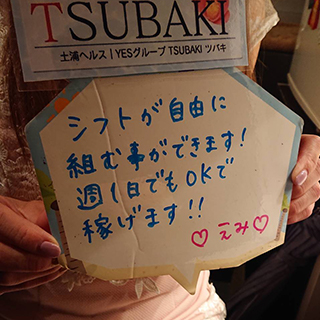 TSUBAKI
土浦ヘルス | YESグループ TSUBAKI ツバキ
シフトが自由に
組む事ができます!
週1日でもOKで
稼げます!!
♡えみ♡